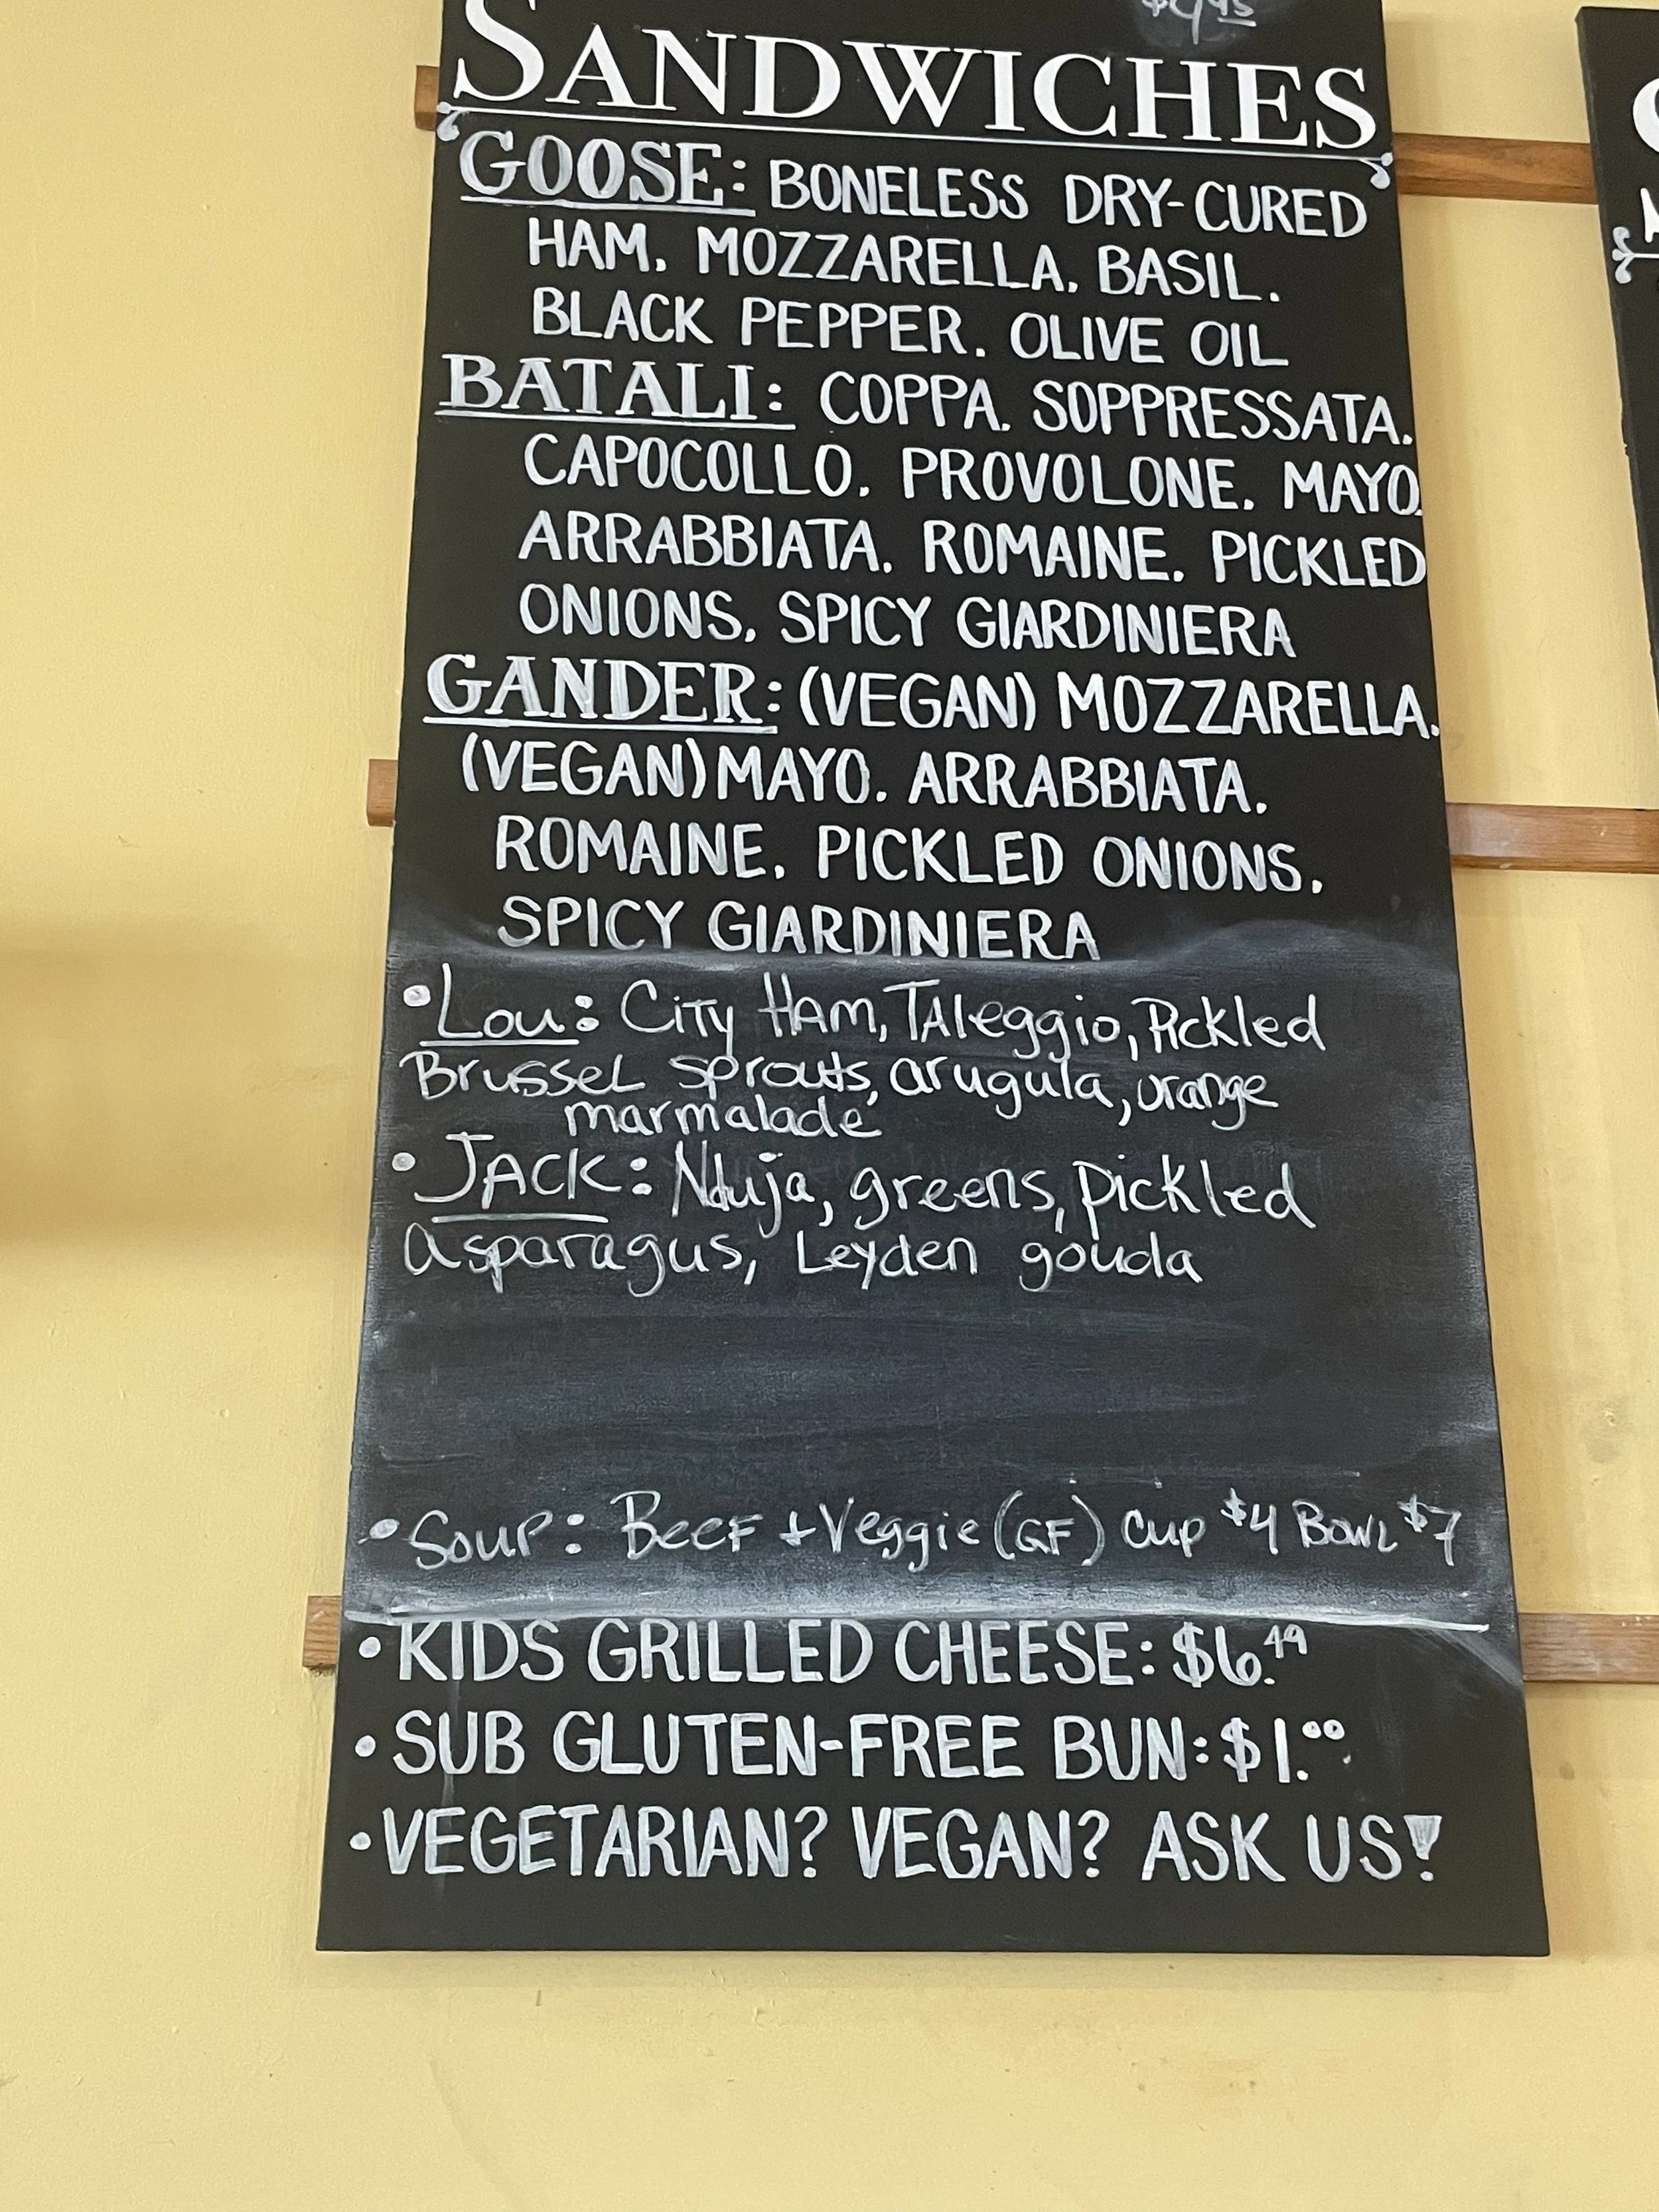 $9.95
SANDWICHES
GOOSE: BONELESS DRY-CURED
HAM. MOZZARELLA. BASIL.
BLACK PEPPER. OLIVE OIL
BATALI: COPPA. SOPPRESSATA.
CAPOCOLLO. PROVOLONE. MAYO.
ARRABBIATA. ROMAINE. PICKLED
ONIONS. SPICY GIARDINIERA
GANDER: (VEGAN) MOZZARELLA.
(VEGAN) MAYO. ARRABBIATA.
ROMAINE. PICKLED ONIONS.
SPICY GIARDINIERA
• Lou: City Ham, TAleggio, Pickled
Brussel sprouts, arugula, orange
marmalade
• JACK: Nduja, greens, pickled
Asparagus, Leyden gouda
• Soup: Beef + Veggie (GF) Cup $4 Bowl $7
• KIDS GRILLED CHEESE: $6.49
• SUB GLUTEN-FREE BUN: $1.00
• VEGETARIAN? VEGAN? ASK US!